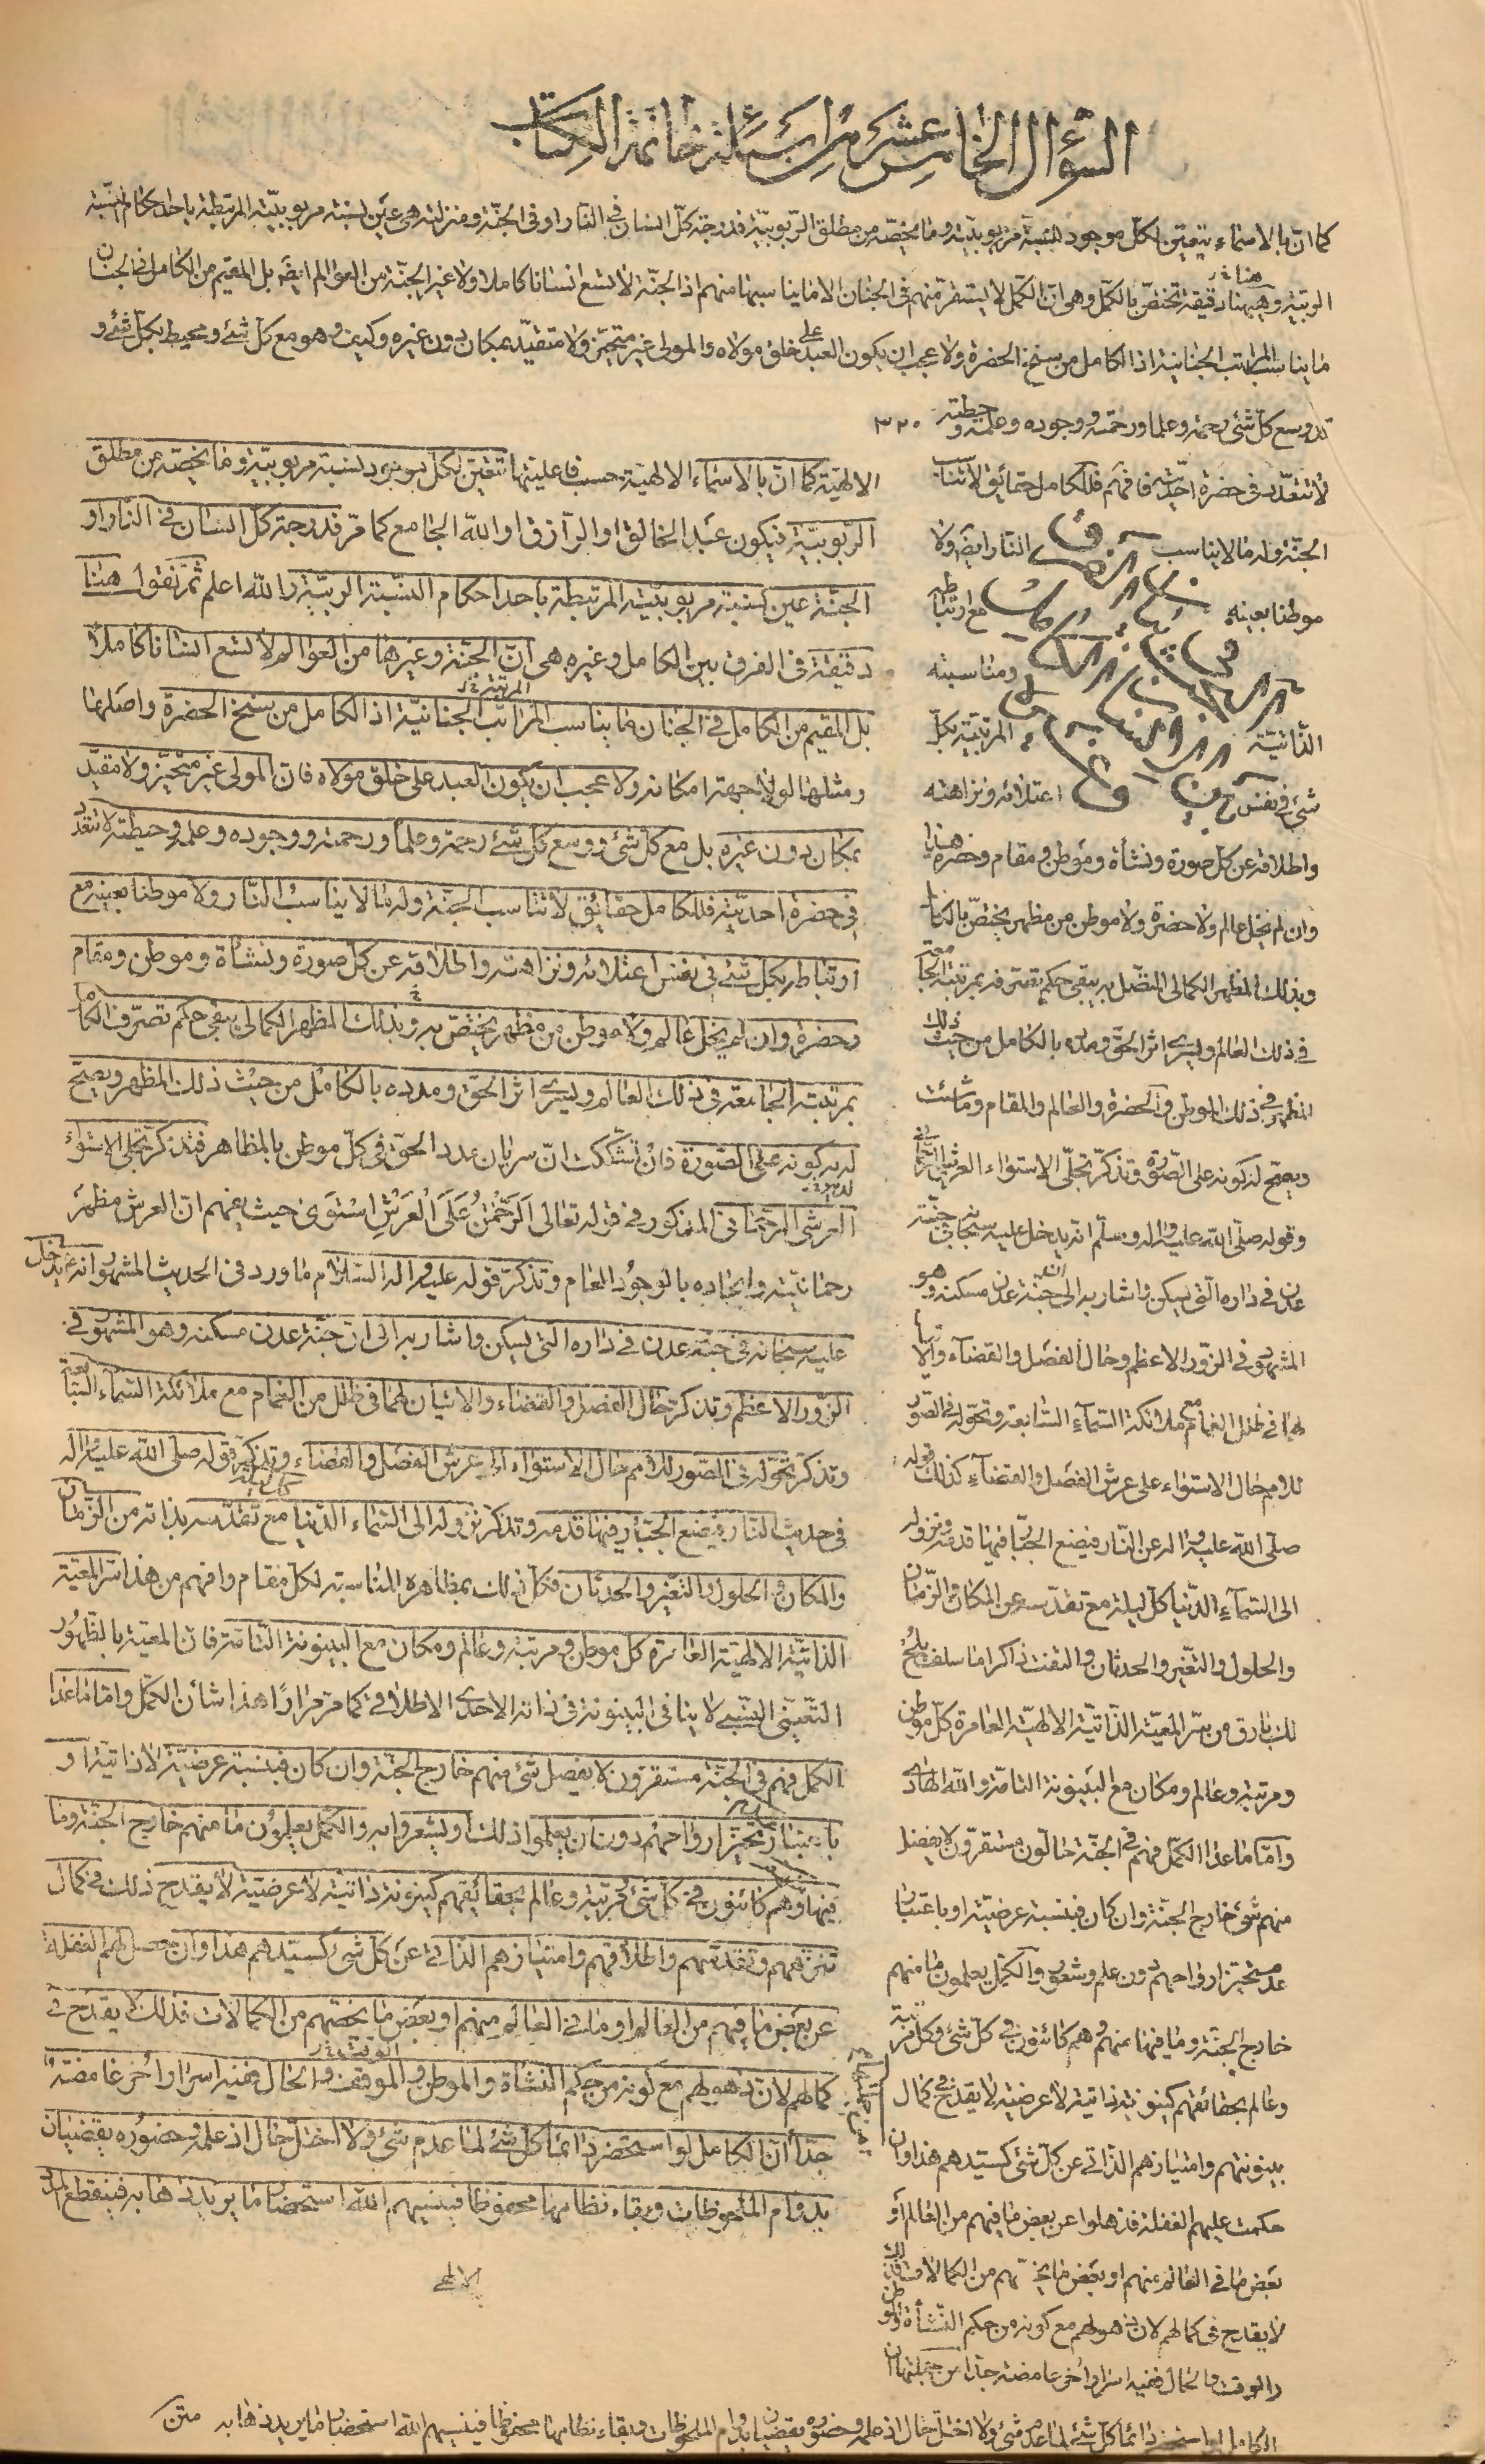 السؤال الخامس عشر من اسئلة خاتمة الكتاب
كما ان بالاسماء يتعين لكل موجود نسبة مربوبيته وما يخصه من مطلق الربوبية فدرجة كل انسان في النار او في الجنة ومنزلته هي عين نسبة مربوبيته المرتبطة باحد احكام النسبة
الربية وهيهنا دقيقة تختص بالكمل وهي ان الكمل لا يستقر منهم في الجنان الا ما يناسبها منهم اذ الجنة لا تسع انسانا كاملا ولا غير الجنة من العوالم ايضا بل المقيم من الكامل في الجنان
ما يناسب المراتب الجنانية اذ الكامل من سنخ الحضرة ولا عجب ان يكون العبد على خلق مولاه والمولى غير متحيز ولا متقيد بمكان دون غيره وكيف وهو مع كل شئ ومحيط بكل شئ و
قد وسع كل شئ رحمة وعلما ورحمته وجوده وعلمه وحيطته ٣٢٠
لا تتعدد في حضرة احديته فافهم فللكامل حقائق لا تناسب
الجنة وله ما لا يناسب النار ايضا ولا
موطنا بعينه مع ارتباطه
ومناسبته
الذاتية المرتبية بكل
شئ في نفس اعتلائه ونزاهته
واطلاقه عن كل صورة ونشأة وموطن ومقام وحضرة هذا
وان لم يخل عالم ولا حضرة ولا موطن من مظهر يختص بالكامل
وبذلك المظهر الكمالي المتصل به يبقى حكم تصرفه بمرتبته الجامعة
في ذلك العالم ويسري اثر الحق ومدده بالكامل من حيث ذلك
المظهر في ذلك الموطن والحضرة والعالم والمقام وما شئت
ويصح له كونه على الصورة وتذكر تجلي الاستواء العرشي الرحماني
وقوله صلى الله عليه واله وسلم انه يدخل عليه سبحانه في جنة
عدن في داره التي يسكن واشار به الى ان جنة عدن مسكنه وهو
المشهور في الزور الاعظم وحال الفصل والقضاء والاتيان
لهما في ظلل الغمام مع ملائكة السماء السابعة وتحوله في الصور
للامم حال الاستواء على عرش الفصل والقضاء كذلك قوله
صلى الله عليه واله عن النار فيضع الجبار فيها قدمه ونزوله
الى السماء الدنيا كل ليلة مع تقدسه عن المكان والزمان
والحلول والتغير والحدثان والتفت ذاكرا ما سلف يلح
لك بارق من سر المعية الذاتية الالهية العامرة كل موطن
ومرتبة وعالم ومكان مع البينونة التامة والله الهادي
واما ما عدا الكمل فهم في الجنة حالون مستقرون لا يفضل
منهم شئ خارج الجنة وان كان فبنسبة عرضية او باعتبار
عدم تحيز ارواحهم دون علم وشعور والكمل يعلمون ما منهم
خارج الجنة وما فيها منهم وهم كائنون في كل شئ وكل مرتبة
وعالم بحقائقهم كينونة ذاتية لا عرضية لا يقدح في كمال
بينونتهم وامتيازهم الذاتي عن كل شئ كسيدهم هذا وان
حكمت عليهم الغفلة فذهلوا عن بعض ما فيهم من العالم او
بعض ما في العالم منهم او بعض ما يخصهم من الكمالات فذلك
لا يقدح في كمالهم لان ذهولهم مع كونه من حكم النشأة والموطن
والوقت والحال ففيه اسرار اخر غامضة جدا من جملتها ان
الكامل لو استحضر دائما كل شئ لما عدم شئ ولا اختل حال اذ علمه وحضوره يقضيان بدوام الملحوظات وبقاء نظامها محفوظا فينسيهم الله استحضار ما يريد ذهابه متن
الالهية كما ان بالاسماء الالهية حسب فاعليتها تتعين لكل موجود نسبة مربوبيته وما يخصه من مطلق
الربوبية فيكون عبد الخالق او الرازق او الله الجامع كما مر فدرجة كل انسان في النار او
الجنة عين نسبة مربوبيته المرتبطة باحد احكام النسبة الربية والله اعلم ثم نقول هنا
دقيقة في الفرق بين الكامل وغيره هي ان الجنة وغيرها من العوالم لا تسع انسانا كاملا
بل المقيم من الكامل في الجنان ما يناسب المراتب الجنانية اذ الكامل من سنخ الحضرة واصلها
ومثلها لولا جهة امكانه ولا عجب ان يكون العبد على خلق مولاه فان المولى غير متحيز ولا مقيد
بمكان دون غيره بل مع كل شئ ووسع كل شئ رحمة وعلما ورحمته ووجوده وعلمه وحيطته لا تتعدد
في حضرة احديته فللكامل حقائق لا تناسب الجنة وله ما لا يناسب النار ولا موطنا بعينه مع
ارتباطه بكل شئ في نفس اعتلائه ونزاهته واطلاقه عن كل صورة ونشأة وموطن ومقام
وحضرة وان لم يخل عالم ولا موطن من مظهر يختص به وبذلك المظهر الكمالي يبقى حكم تصرف الكامل
بمرتبته الجامعة في ذلك العالم ويسري اثر الحق ومدده بالكامل من حيث ذلك المظهر ويصح
له به كونه على الصورة فان تشككت ان سريان مدد الحق في كل موطن بالمظاهر فتذكر تجلي الاستواء
العرشي الرحماني المذكور في قوله تعالى الرحمن على العرش استوى حيث يفهم ان العرش مظهر
رحمانيته وايجاده بالوجود العام وتذكر قوله عليه واله السلام ما ورد في الحديث المشهور انه يدخل
عليه سبحانه في جنة عدن في داره التي يسكن واشار به الى ان جنة عدن مسكنه وهو المشهور في
الزور الاعظم وتذكر حال الفصل والقضاء والاتيان لهما في ظلل من الغمام مع ملائكة السماء السابعة
وتذكر تحوله في الصور للامم حال الاستواء على عرش الفصل والقضاء وتذكر قوله صلى الله عليه واله
في حديث النار فيضع الجبار فيها قدمه وتذكر نزوله الى السماء الدنيا مع تقدسه بذاته من الزمان
والمكان والحلول والتغير والحدثان فكل ذلك بمظاهره المناسبة لكل مقام وافهم من هذا سر المعية
الذاتية الالهية العامرة كل موطن ومرتبة وعالم ومكان مع البينونة التامة فان المعية بالظهور
التعيني النسبي لا ينافي البينونة في ذاته الاحدي الاطلاقي كما مر مرارا هذا شأن الكمل واما ما عدا
الكمل فهم في الجنة مستقرون لا يفضل شئ منهم خارج الجنة وان كان فبنسبة عرضية لا ذاتية او
باعتبار تحيز ارواحهم دون ان يعلموا ذلك او يشعروا به والكمل يعلمون ما منهم خارج الجنة وما
فيها وهم كائنون في كل شئ ومرتبة وعالم بحقائقهم كينونة ذاتية لا عرضية لا يقدح ذلك في كمال
تنزههم وتقدسهم واطلاقهم وامتيازهم الذاتي عن كل شئ كسيدهم هذا وان حصل لهم الغفلة
عن بعض ما فيهم من العالم او ما في العالم منهم او بعض ما يخصهم من الكمالات فذلك لا يقدح في
كمالهم لان ذهولهم مع كونه من حكم النشأة والموطن والموقف والحال ففيه اسرار اخر غامضة
جدا ان الكامل لو استحضر دائما كل شئ لما عدم شئ ولا اختل حال اذ علمه وحضوره يقضيان
بدوام الملحوظات وبقاء نظامها محفوظا فينسيهم الله استحضار ما يريد ذهابه فينقطع المدد
الالهي